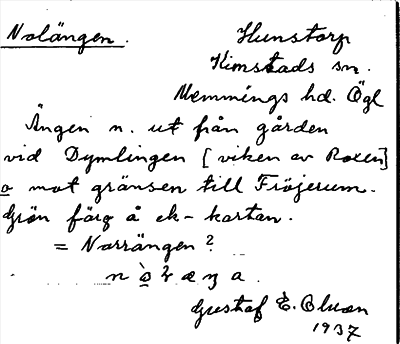 Nolängen.
Hunstorp
Kimstads sn.
Memmings hd. Ögl
Ängen n. ut från gården
vid Dymlingen [viken av Roxen]
o mot gränsen till Fröjerum.
Grön färg å ek-kartan.
= Norrängen?
Gustaf E. Olson
1937